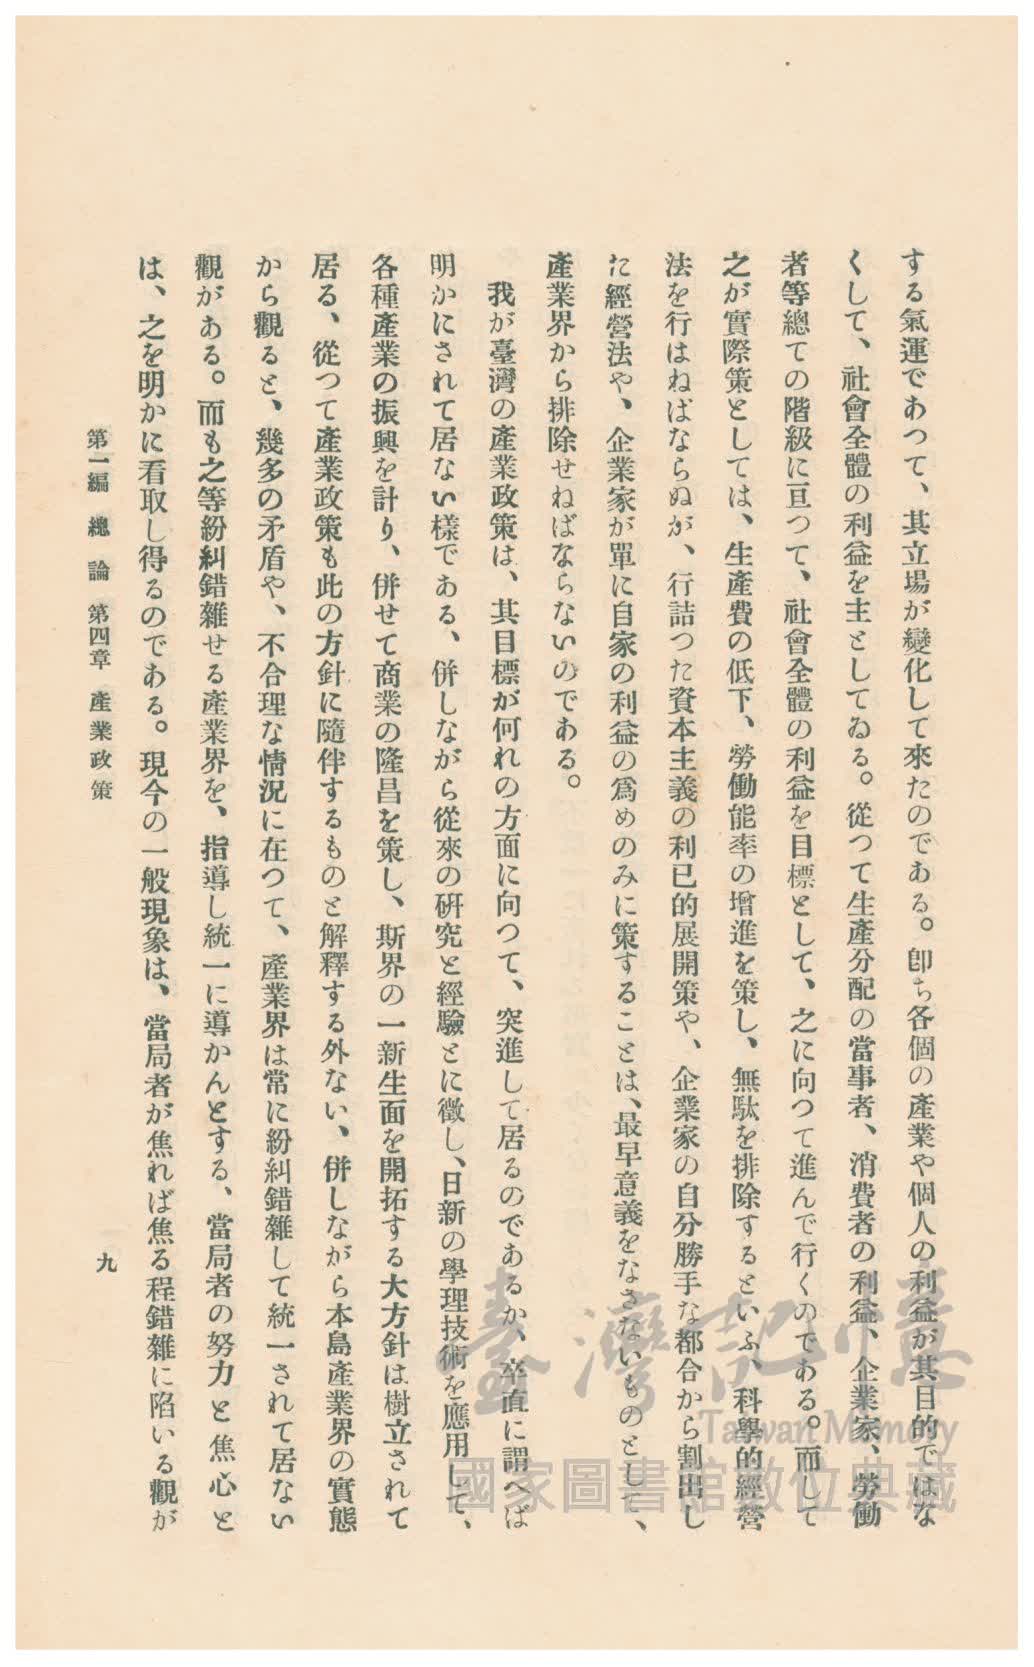 する氣運であつて、其立場が變化して來たのである。卽ち各個の產業や個人の利益が其目的ではな
くして、社會全體の利益を主としてゐる。從つて生產分配の當事者、消費者の利益、企業家、勞働
者等總ての階級に亘つて、社會全體の利益を目標として、之に向つて進んで行くのである。而して
之が實際策としては、生產費の低下、勞働能率の增進を策し、無駄を排除するといふ、科學的經營
法を行はねばならぬが、行詰つた資本主義の利已的展開策や、企業家の自分勝手な都合から割出し
た經營法や、企業家が單に自家の利益の爲めのみに策することは、最早意義をなさないものとして、
產業界から排除せねばならないのである。
我が臺灣の產業政策は、其目標が何れの方面に向つて、突進して居るのであるか、卒直に謂へば
明かにされて居ない樣である、併しながら從來の硏究と經驗とに徵し、日新の學理技術を應用して、
各種產業の振興を計り、併せて商業の隆昌を策し、斯界の一新生面を開拓する大方針は樹立されて
居る、從つて產業政策も此の方針に隨伴するものと解釋する外ない、併しながら本島產業界の實態
から觀ると、幾多の矛盾や、不合理な情況に在つて、產業界は常に紛糾錯雜して統一されて居ない
觀がある。而も之等紛糾錯雜せる產業界を、指導し統一に導かんとする、當局者の努力と焦心と
は、之を明かに看取し得るのである。現今の一般現象は、當局者が焦れば焦る程錯雜に陷いる觀が
第一編 總論 第四章 產業政策
九
臺灣記憶
Taiwan Memory
國家圖書館數位典藏